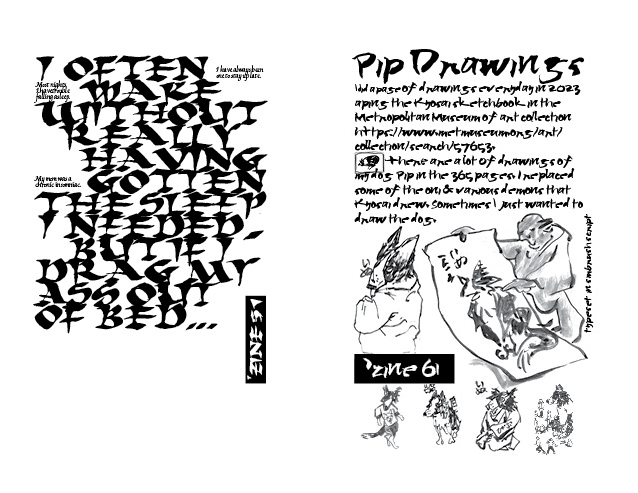 I OFTEN
I have always been
one to stay up late.
Most nights,
I have trouble
falling asleep.
WAKE
WITHOUT
REALLY
HAVING
My mom was a
chronic insomniac.
GOTTEN
THE SLEEP
I NEEDED-
BUT IF I-
DRAG MY
ASS OUT
OF BED...
'ZINE 51
Pip Drawings
a page of drawings everyday in 2023
aping the Kyosai sketchbook in the
Metropolitan Museum of art collection
https://www.metmuseum.org/art/
collection/search/57653.
there are a lot of drawings of
my dog Pip in the 365 pages. I replaced
some of the oni & various demons that
Kyosai drew. Sometimes I just wanted to
draw the dog.
typeset in
'zine 61